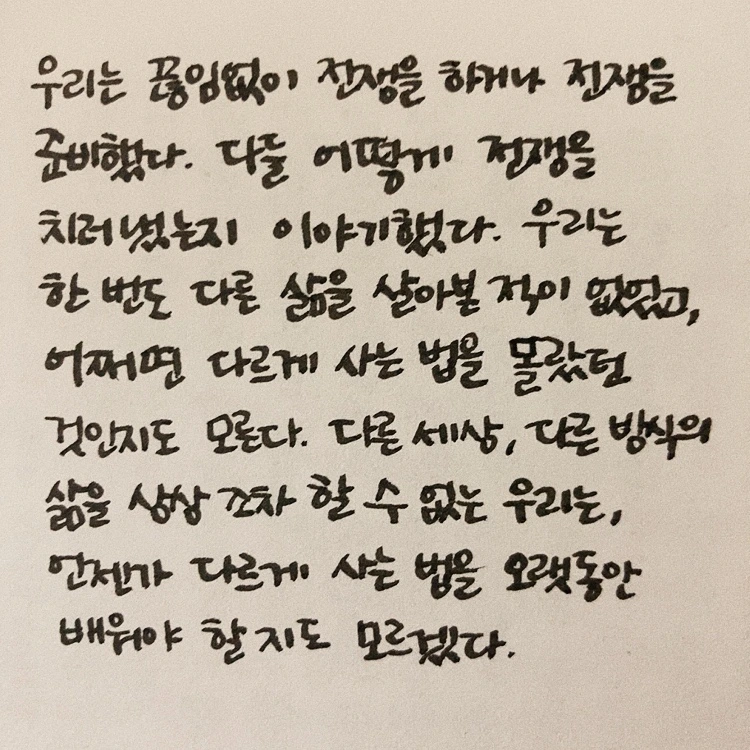 우리는 끊임없이 전쟁을 하거나 전쟁을
준비했다. 다들 어떻게 전쟁을
치러냈는지 이야기했다. 우리는
한 번도 다른 삶을 살아본 적이 없었고,
어쩌면 다르게 사는 법을 몰랐던
것인지도 모른다. 다른 세상, 다른 방식의
삶을 상상조차 할 수 없는 우리는,
언젠가 다르게 사는 법을 오랫동안
배워야 할지도 모르겠다.